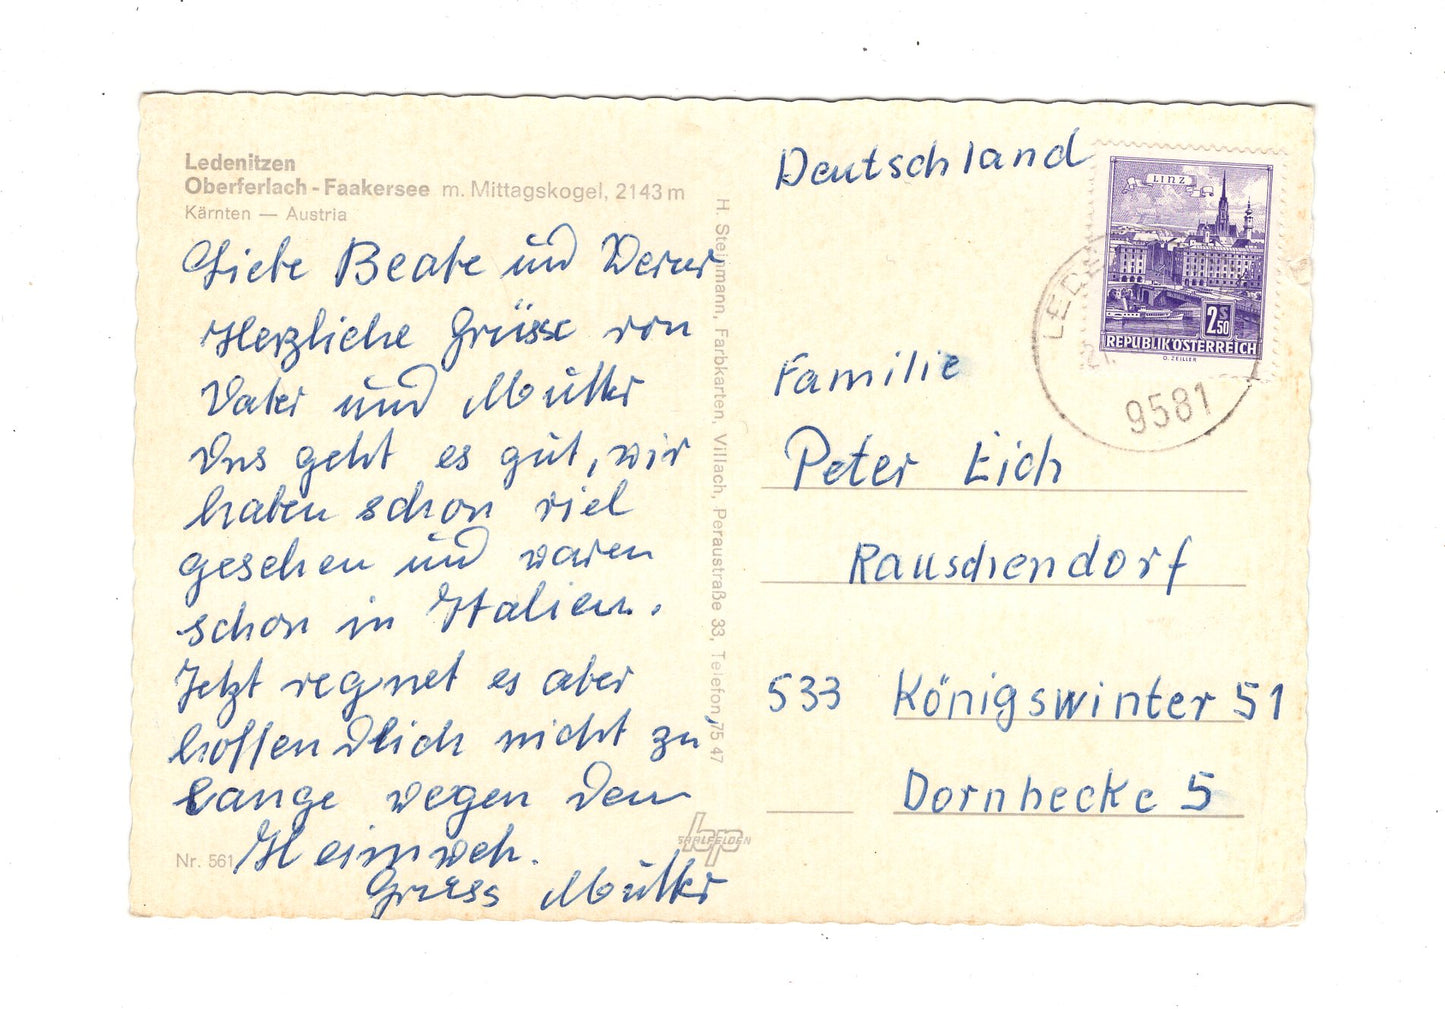 Ledenitzen
Oberferlach - Faakersee m. Mittagskogel, 2143 m
Kärnten — Austria
Liebe Beate und Werner
Herzliche Grüsse von
Vater und Mutter
Uns geht es gut, wir
haben schon viel
gesehen und waren
schon in Italien.
Jetzt regnet es aber
hoffendlich nicht zu
lange wegen dem
Heimweh.
Gruss Mutter
Nr. 561
H. Steinmann, Farbkarten, Villach, Peraustraße 33, Telefon 75 47
hp
SAALFELDEN
Deutschland
LINZ
2S50
REPUBLIK ÖSTERREICH
O. ZEILLER
9581
Familie
Peter Eich
Rauschendorf
533 Königswinter 51
Dornhecke 5